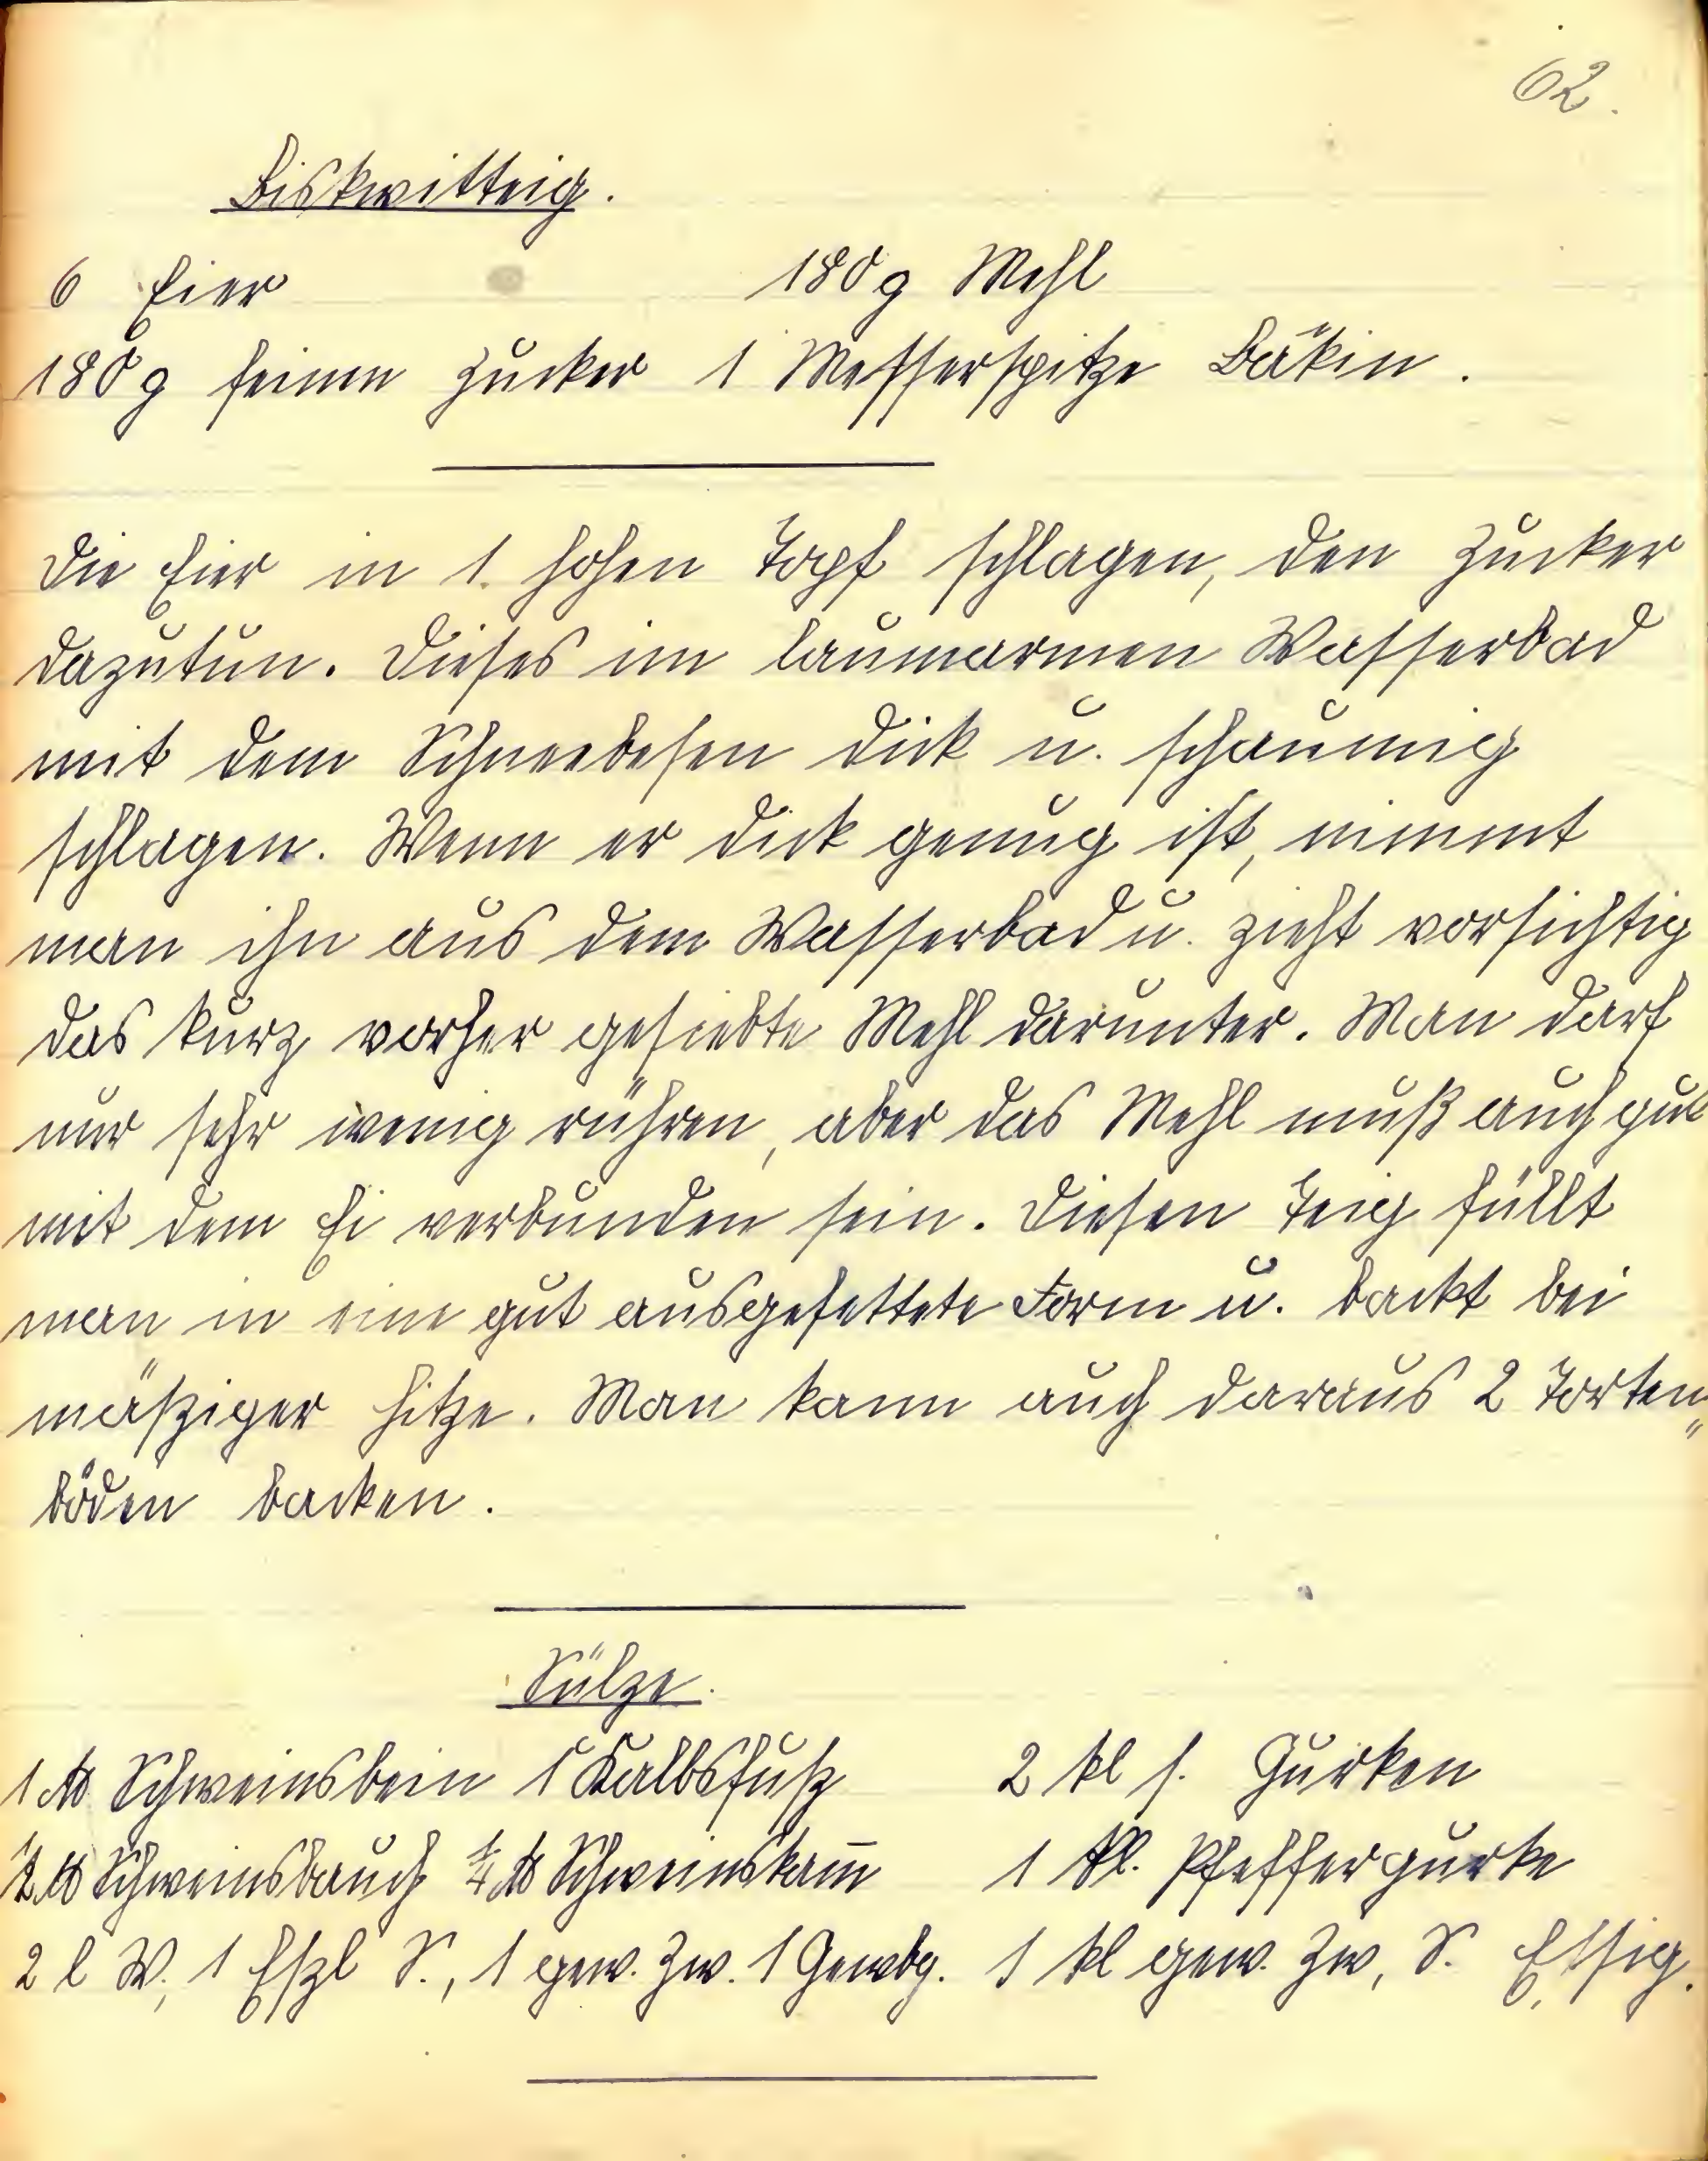 62.
Biskwitteig.
6 Eier 180 g Mehl
180 g feinen Zucker 1 Messerspitze Bäkin.
Die Eier in 1 hohen Topf schlagen, den Zucker
dazutun. Dieses im lauwarmen Wasserbad
mit dem Schneebesen dick u. schaumig
schlagen. Wenn er dick genug ist, nimmt
man ihn aus dem Wasserbad u. zieht vorsichtig
das kurz vorher gesiebte Mehl darunter. Man darf
nur sehr wenig rühren, aber das Mehl muß auch gut
mit dem Ei verbunden sein. Diesen Teig füllt
man in eine gut ausgefettete Form u. backt bei
mäßiger Hitze. Man kann auch daraus 2 Torten„
böden backen.
Sülze.
1 ℔ Schweinsbein 1 Kalbsfuß 2 kl s. Gurken
1/2 ℔ Schweinsbauch 1/4 ℔ Schweinskam̅ 1 kl. Pfeffergurke
2 l W, 1 Eßl S., 1 gew. Zw. 1 Gewbg. 1 kl gew. Zw, S. Essig.